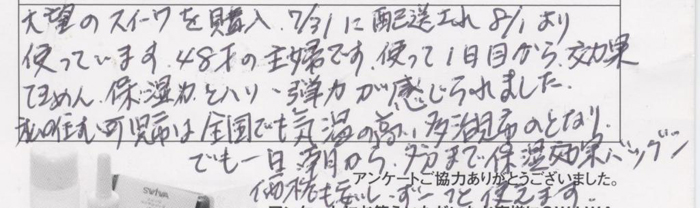 大望のスイーワを購入.7/31に配送され8/1より
使っています.48才の主婦です.使って1日目から.効果
てきめん.保湿力とハリ・弾力が感じられました.
私の住む可児市は全国でも気温の高い多治見市のとなり.
でも一日 朝から.夕方まで保湿効果バツグン
アンケートご協力ありがとうございました。
価格も安いしずーっと使えます.
SWIWA